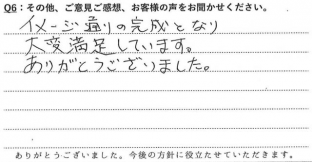 Q6：その他、ご意見ご感想、お客様の声をお聞かせください。
イメージ通りの完成となり
大変満足しています。
ありがとうございました。
ありがとうございました。今後の方針に役立たせていただきます。